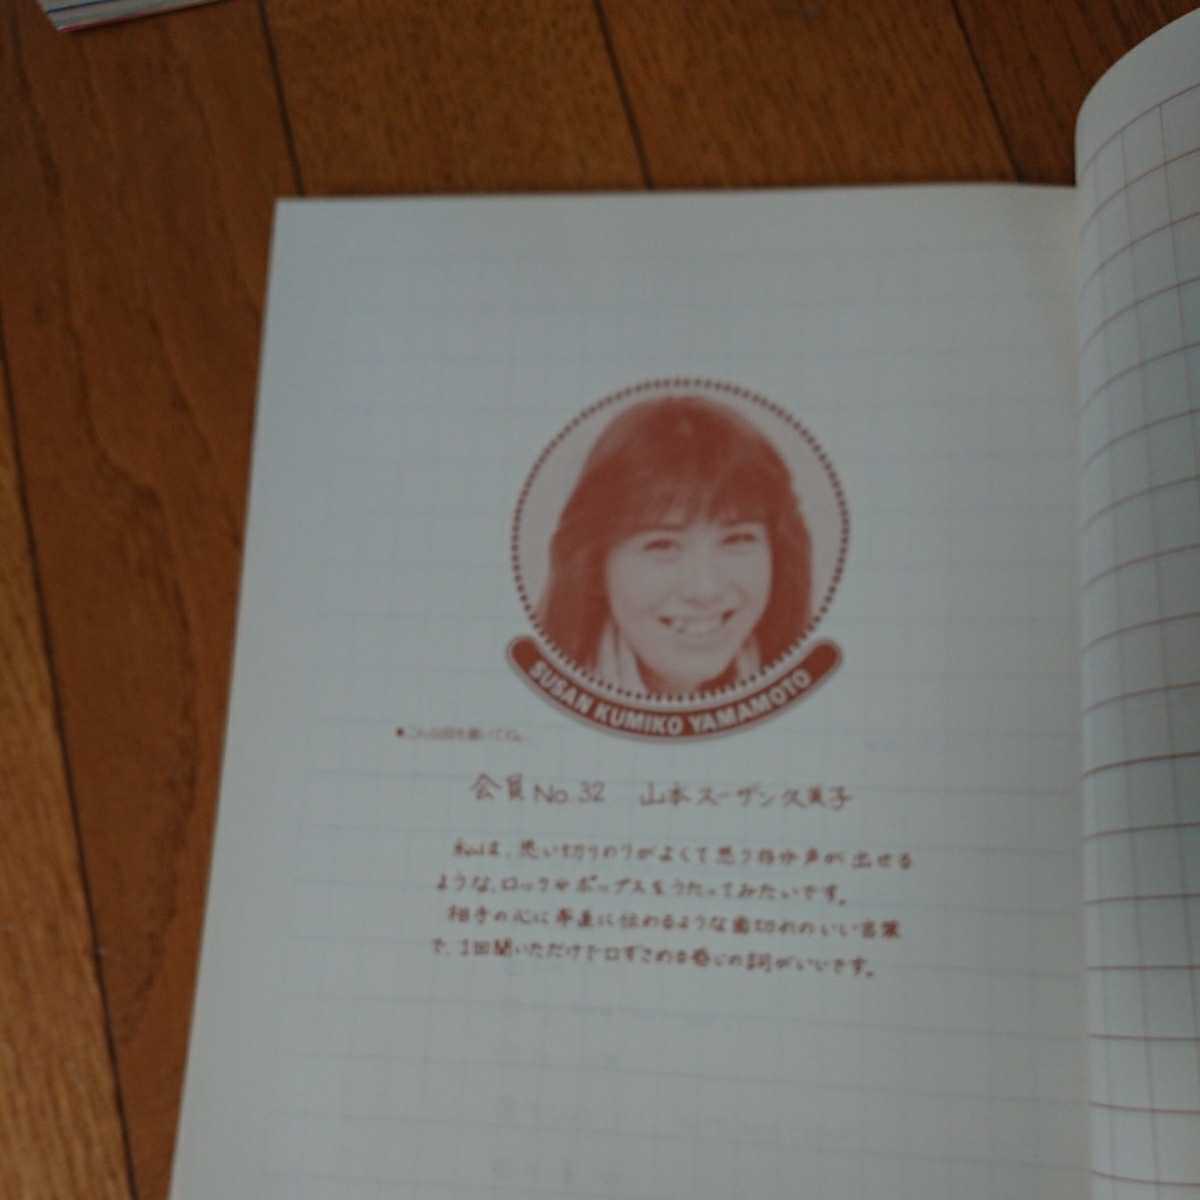 SUSAN KUMIKO YAMAMOTO
●こんな詞を書いてね。
会員No.32 山本スーザン久美子
私は、思い切りのりがよくて思う存分声が出せる
ような、ロックやポップスをうたってみたいです。
相手の心に率直に伝わるような歯切れのいい言葉
で、1回聞いただけで口ずさめる感じの詞がいいです。